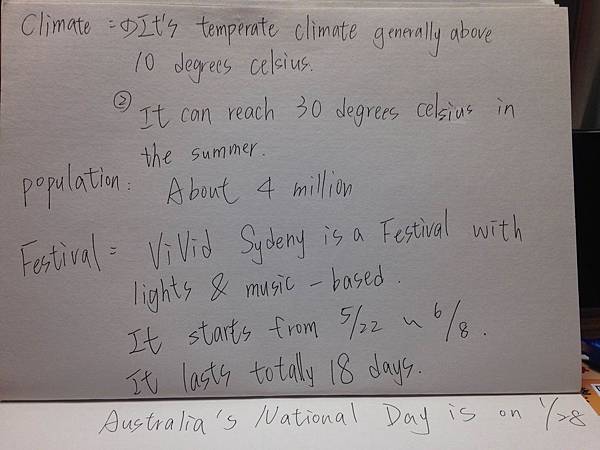 Climate = ① It's temperate climate generally above
10 degrees celsius.
② It can reach 30 degrees celsius in
the summer.
population: About 4 million
Festival = ViVid Sydeny is a Festival with
lights & music - based.
It starts from 5/22 ~ 6/8.
It lasts totally 18 days.
Australia's National Day is on 1/28